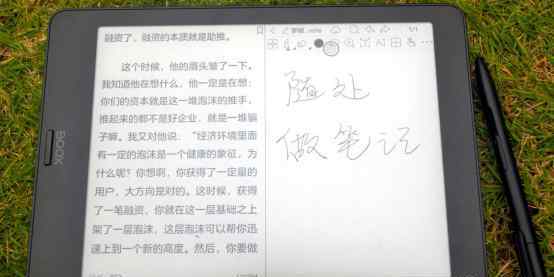 融资了，融资的本质就是助推。
这个时候，他的眉头皱了一下。
我知道他在想什么，他一定是在想：
你们的资本就是这一堆泡沫的推手，
推起来的都不是好企业，就是一堆骗
子嘛。我又对他说：“经济环境里面
有一定的泡沫是一个健康的象征，为
什么呢？你想啊，你获得了一定量的
用户，大方向是对的。这时候，获得
了一笔融资，你就在这一层基础之上
架了一层泡沫，这层泡沫可以帮你迅
速上到一个新的高度。然后，你要做
随处
做笔记
BOOX